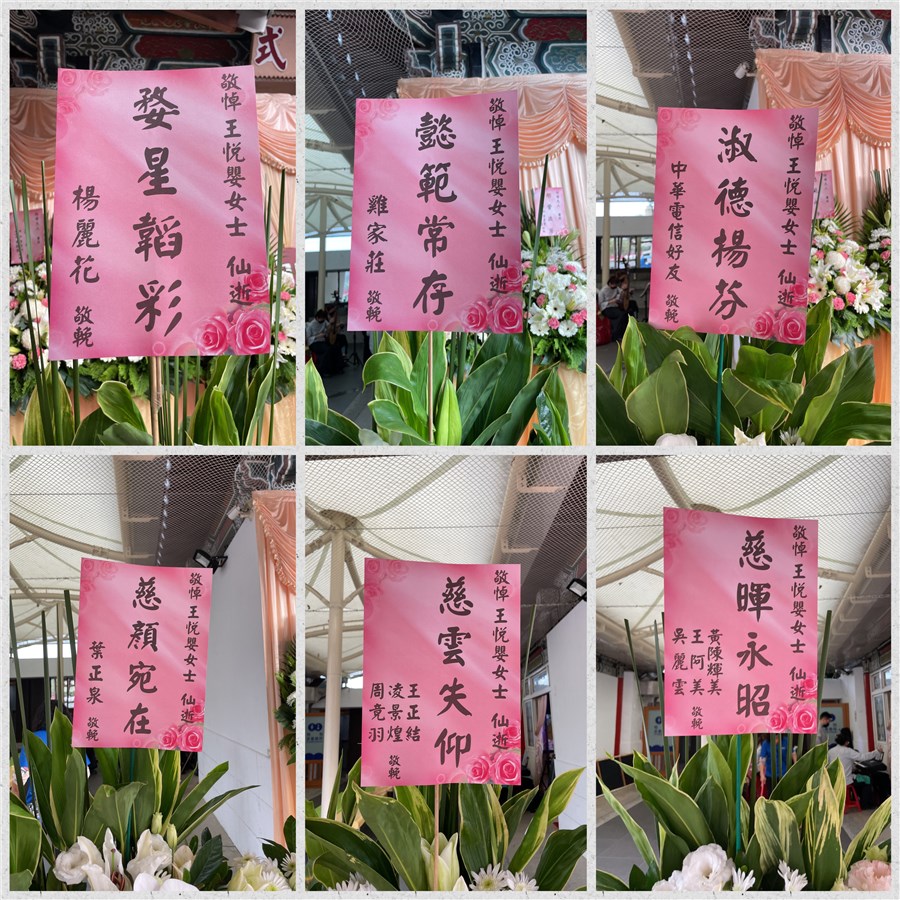 敬悼 王悦嬰女士 仙逝
婺星韜彩
楊麗花 敬輓
式
敬悼 王悦嬰女士 仙逝
懿範常存
雞家莊 敬輓
敬悼 王悦嬰女士 仙逝
淑德揚芬
中華電信好友 敬輓
敬悼 王悦嬰女士 仙逝
慈顏宛在
葉正泉 敬輓
敬悼 王悦嬰女士 仙逝
慈雲失仰
王正結
凌景煌
周竟羽
敬輓
敬悼 王悦嬰女士 仙逝
慈暉永昭
黃陳輝美
王阿美
吳麗雲
敬輓